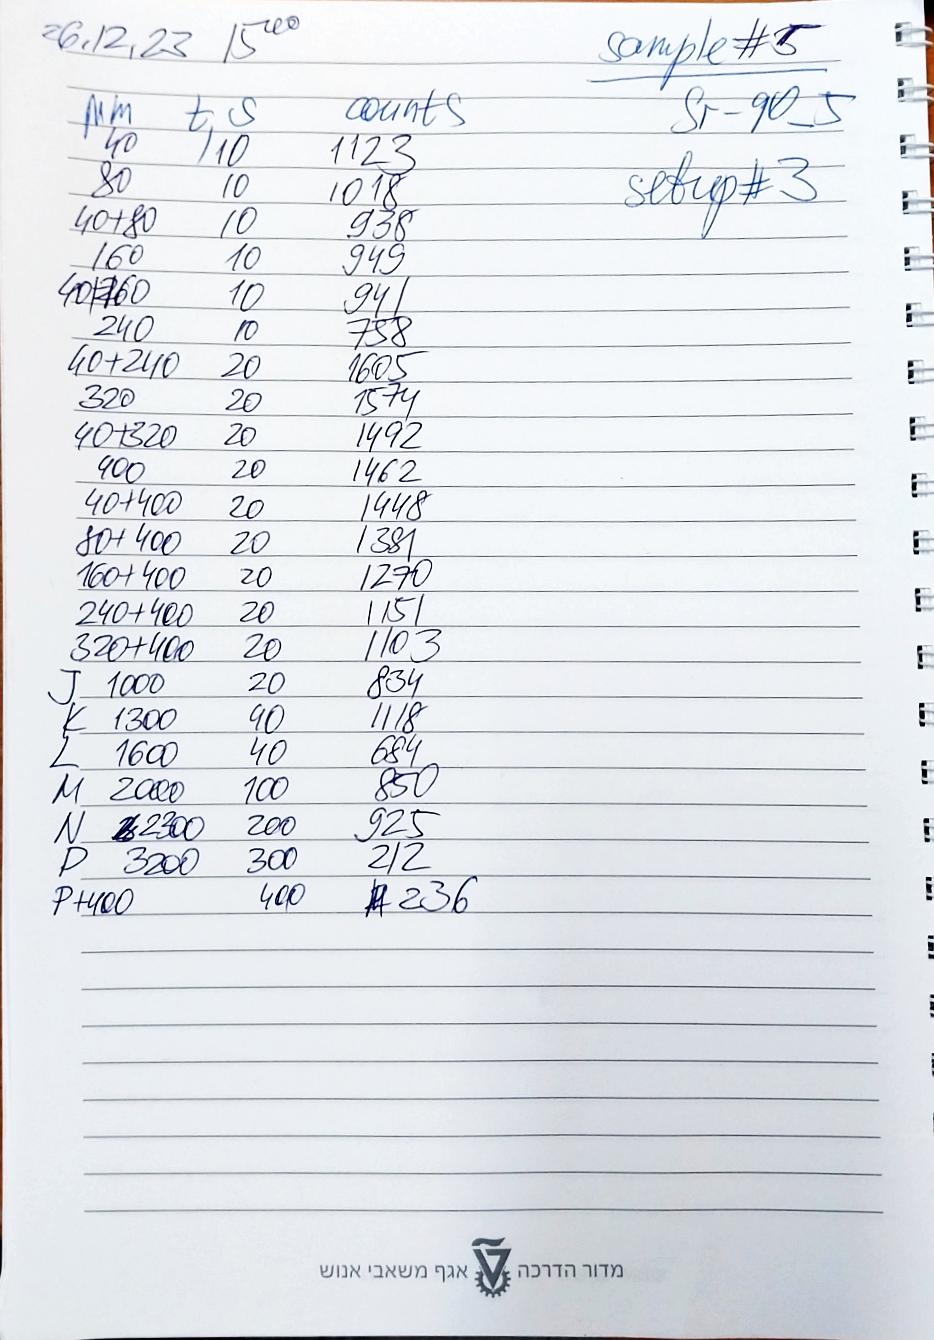 26.12.23 15⁰⁰
sample #5
μm t, s counts
Sr-90_5
40 10 1123
setup #3
80 10 1018
40+80 10 938
160 10 949
40+160 10 941
240 10 758
40+240 20 1605
320 20 1574
40+320 20 1492
400 20 1462
40+400 20 1448
80+400 20 1381
160+400 20 1270
240+400 20 1151
320+400 20 1103
J 1000 20 834
K 1300 40 1118
L 1600 40 684
M 2000 100 850
N 2300 200 925
P 3200 300 212
P+400 400 236
מדור הדרכה אגף משאבי אנוש